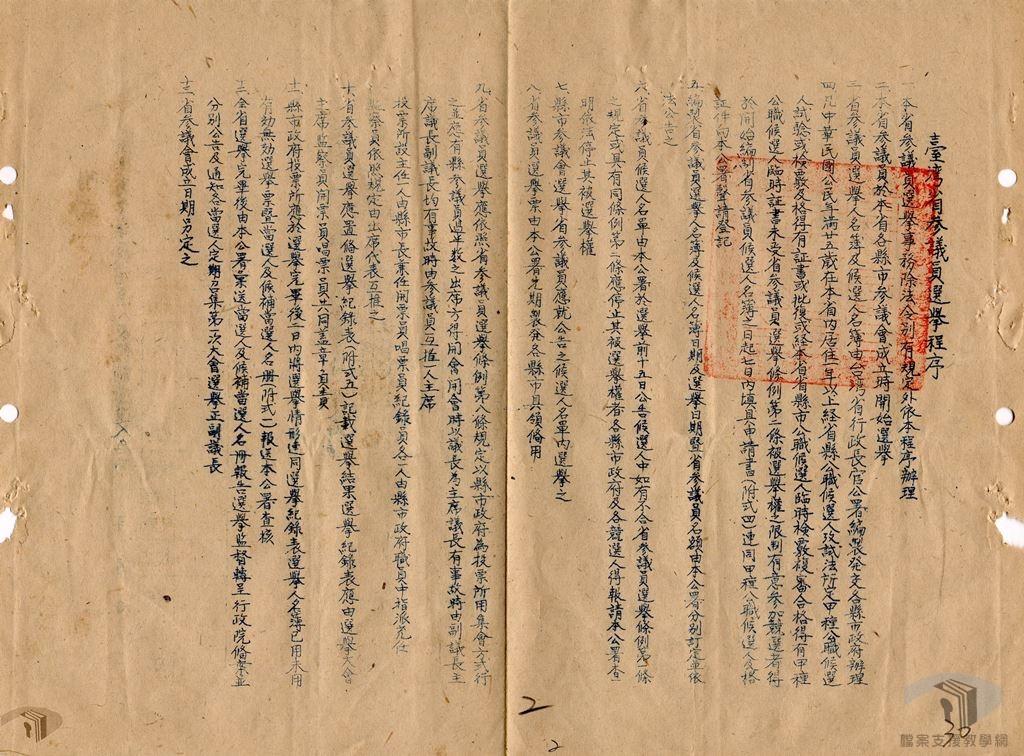 臺灣省參議員選舉程序
一本省參議員選舉事務除法令別有規定外依本程序辦理
二本省參議員於本省各縣市參議會成立時開始選舉
三省參議員選舉人名簿及候選人名簿由台灣省行政長官公署編製發交各縣市政府辦理
四凡中華民國公民年滿廿五歲在本省內居住一年以上經省縣公職候選人攷試法所定甲種公職候選
人試驗或檢覈及格得有証書或批復或經本省省縣市公職候選人臨時檢覈複審合格得有甲種
公職候選人臨時証書未受省參議員選舉條例第二條被選舉權之限制有意參加競選者得
於開始編制省參議員候選人名簿之日起七日內填具申請書（附式四）連同甲種公職候選人及格
証件向本公署聲請登記
五編製省參議員選舉人名簿及候選人名簿日期及選舉日期暨省參議員名額由本公署分別訂定並依
法公告之
六省參議員候選人名單由本公署於選舉前十五日公告候選人中如有不合省參議員選舉條例第一條
之規定或具有同條例第二條應停止其被選舉權者各縣市政府及各競選人得報請本公署查
明依法停止其被選舉權
七縣市參議會選舉省參議員應就公告之候選人名單內選舉之
八省參議員選舉票由本公署先期製發各縣市具領備用
九省參議員選舉應依照省參議員選舉條例第八條規定以縣市政府為投票所用集會方式行
之並應有縣參議員過半數之出席方得開會開會時以議長為主席議長有事故時由副議長主
席議長副議長均有事故時由參議員互推一人主席
投票所設主任一人由縣市長兼任開票員唱票員紀錄員各一人由縣市政府職員中指派充任
監察員依照規定由出席代表互推之
十省參議員選舉應置備選舉紀錄表（附式五）記載選舉結果選舉紀錄表應由選舉大會
主席監察員開票員唱票員共同蓋章負責
十一縣市政府投票所應於選舉完畢後二日內將選舉情形連同選舉紀錄表選舉人名簿已用未用
有効無効選舉票暨當選人及候補當選人名冊（附式一）報送本公署查核
十二全省選舉完畢後由本公署彙送當選人及候補當選人名冊報告選舉監督轉呈行政院備案並
分別公告及通知各當選人定期召集第一次大會選舉正副議長
十三省參議會成立日期另定之
2
2
30
檔案支援教學網